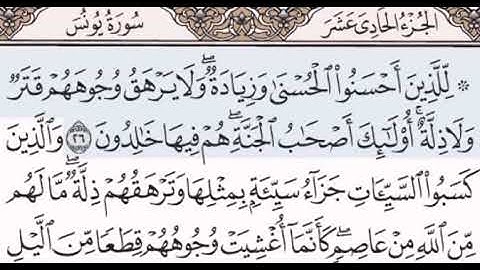 الجُزْءُ الحَادِى عَشَرَ سُورَةُ يُونُسَ
۞ لِّلَّذِينَ أَحْسَنُوا۟ ٱلْحُسْنَىٰ وَزِيَادَةٌۭ ۖ وَلَا يَرْهَقُ وُجُوهَهُمْ قَتَرٌۭ
وَلَا ذِلَّةٌ ۚ أُو۟لَـٰٓئِكَ أَصْحَـٰبُ ٱلْجَنَّةِ ۖ هُمْ فِيهَا خَـٰلِدُونَ ٢٦ وَٱلَّذِينَ
كَسَبُوا۟ ٱلسَّيِّـَٔاتِ جَزَآءُ سَيِّئَةٍۭ بِمِثْلِهَا وَتَرْهَقُهُمْ ذِلَّةٌۭ ۖ مَّا لَهُم
مِّنَ ٱللَّهِ مِنْ عَاصِمٍۢ ۖ كَأَنَّمَآ أُغْشِيَتْ وُجُوهُهُمْ قِطَعًۭا مِّنَ ٱلَّيْلِ